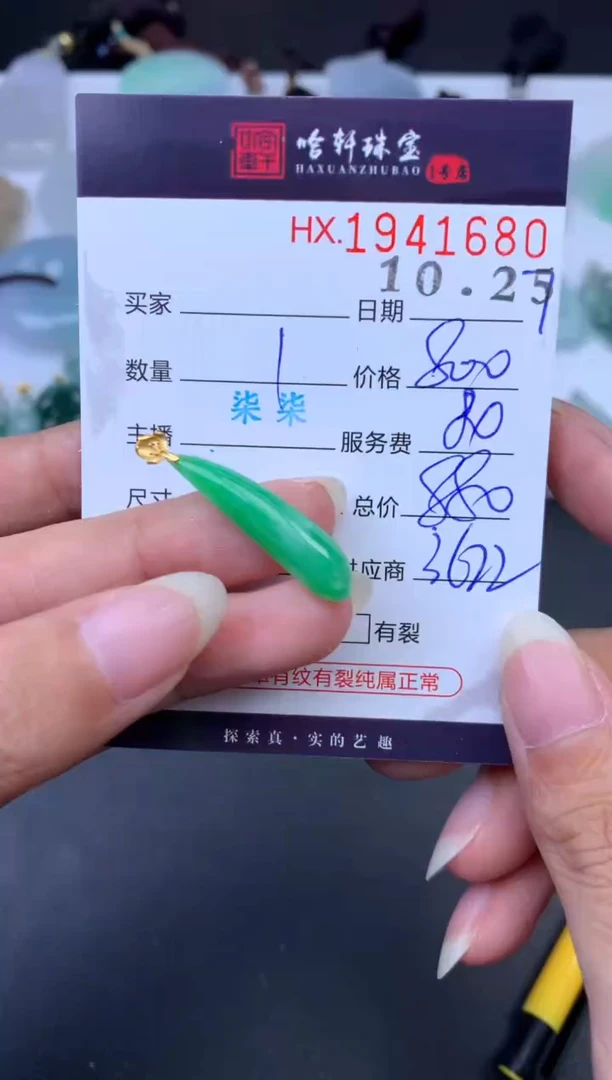 哈轩珠宝
HAXUANZHUBAO 1号店
HX.1941680
10.25
买家 日期
数量 1 价格 800
主播 柒柒 服务费 80
尺寸 总价 880
应商 3622
有裂
有纹有裂纯属正常
探索真·实的艺趣